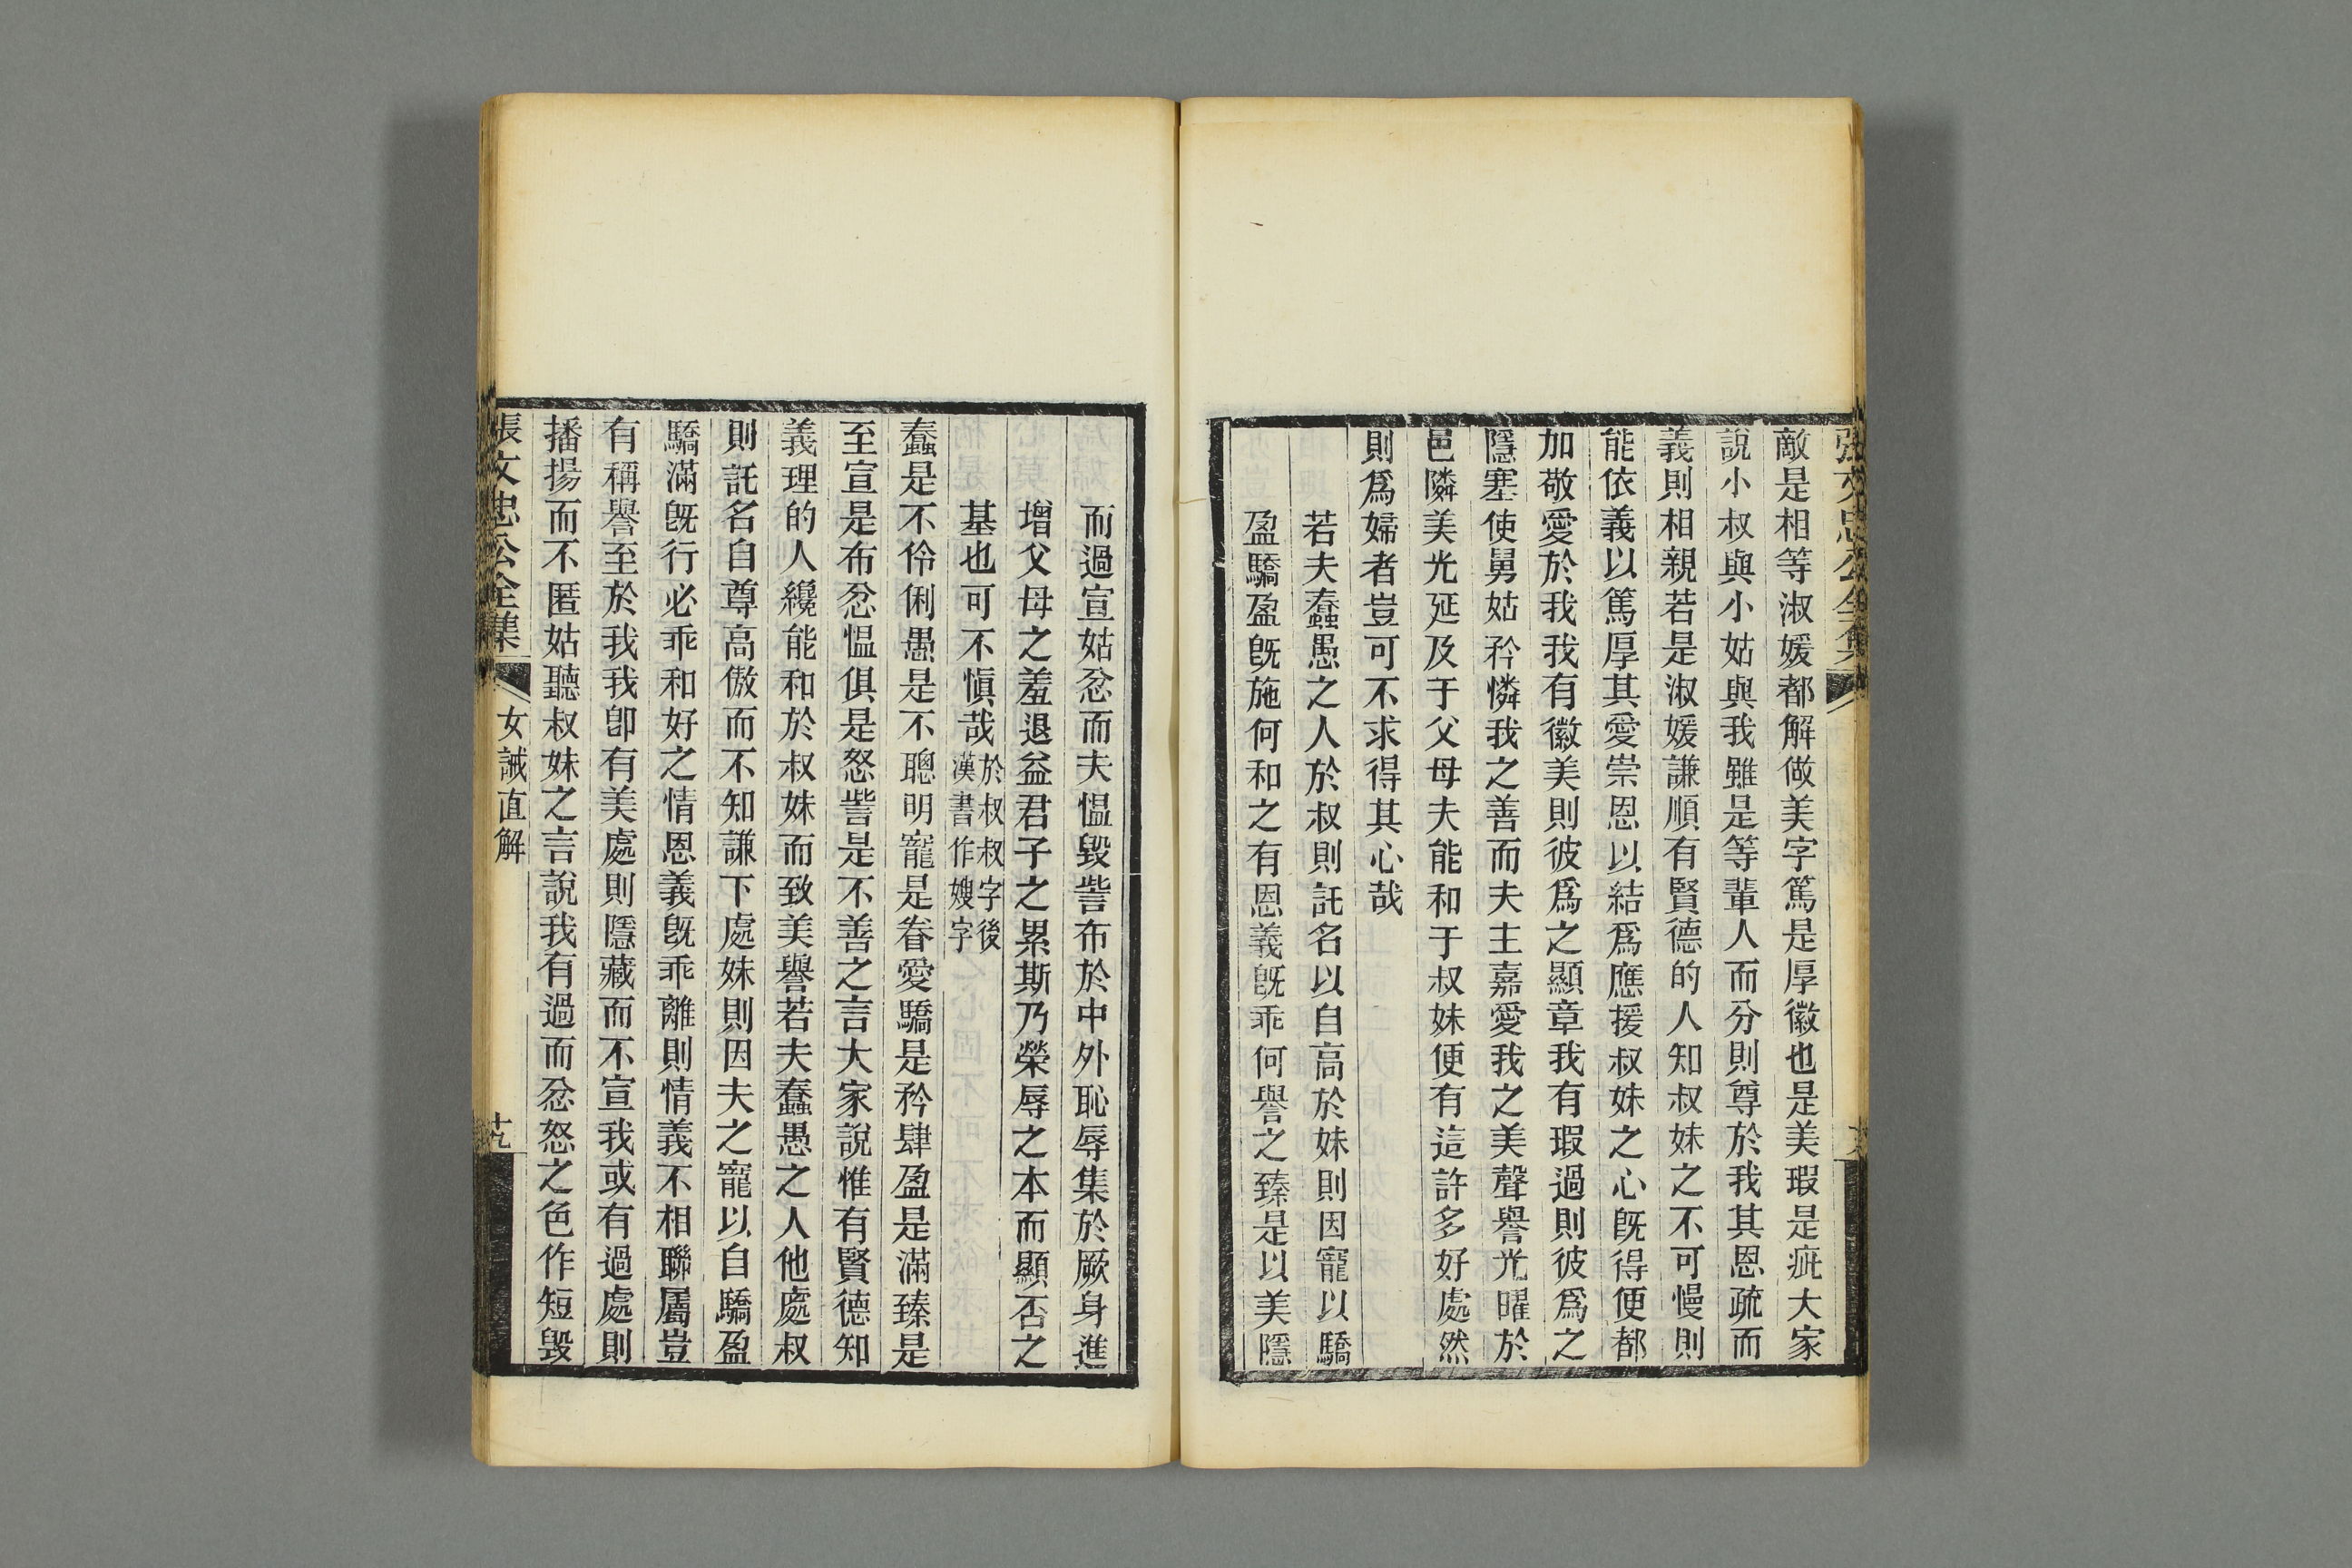 張文忠公全集
敵是相等淑媛都解做美字篤是厚徽也是美瑕是疵大家
說小叔與小姑與我雖是等輩人而分則尊於我其恩疏而
義則相親若是淑媛謙順有賢德的人知叔妹之不可慢則
能依義以篤厚其愛崇恩以結爲應援叔妹之心旣得便都
加敬愛於我我有徽美則彼爲之顯章我有瑕過則彼爲之
隱塞使舅姑矜憐我之善而夫主嘉愛我之美聲譽光曜於
邑隣美光延及于父母夫能和于叔妹便有這許多好處然
則爲婦者豈可不求得其心哉
若夫蠢愚之人於叔則託名以自高於妹則因寵以驕
盈驕盈旣施何和之有恩義旣乖何譽之臻是以美隱
而過宣姑忿而夫慍毀訾布於中外恥辱集於厥身進
增父母之羞退益君子之累斯乃榮辱之本而顯否之
基也可不愼哉於叔叔字後漢書作嫂字
蠢是不伶俐愚是不聰明寵是眷愛驕是矜肆盈是滿臻是
至宣是布忿慍俱是怒訾是不善之言大家說惟有賢德知
義理的人纔能和於叔妹而致美譽若夫蠢愚之人他處叔
則託名自尊高傲而不知謙下處妹則因夫之寵以自驕盈
驕滿旣行必乖和好之情恩義旣乖離則情義不相聯屬豈
有稱譽至於我我卽有美處則隱藏而不宣我或有過處則
播揚而不匿姑聽叔妹之言說我有過而忿怒之色作短毀
張文忠公全集
女誡直解
十九